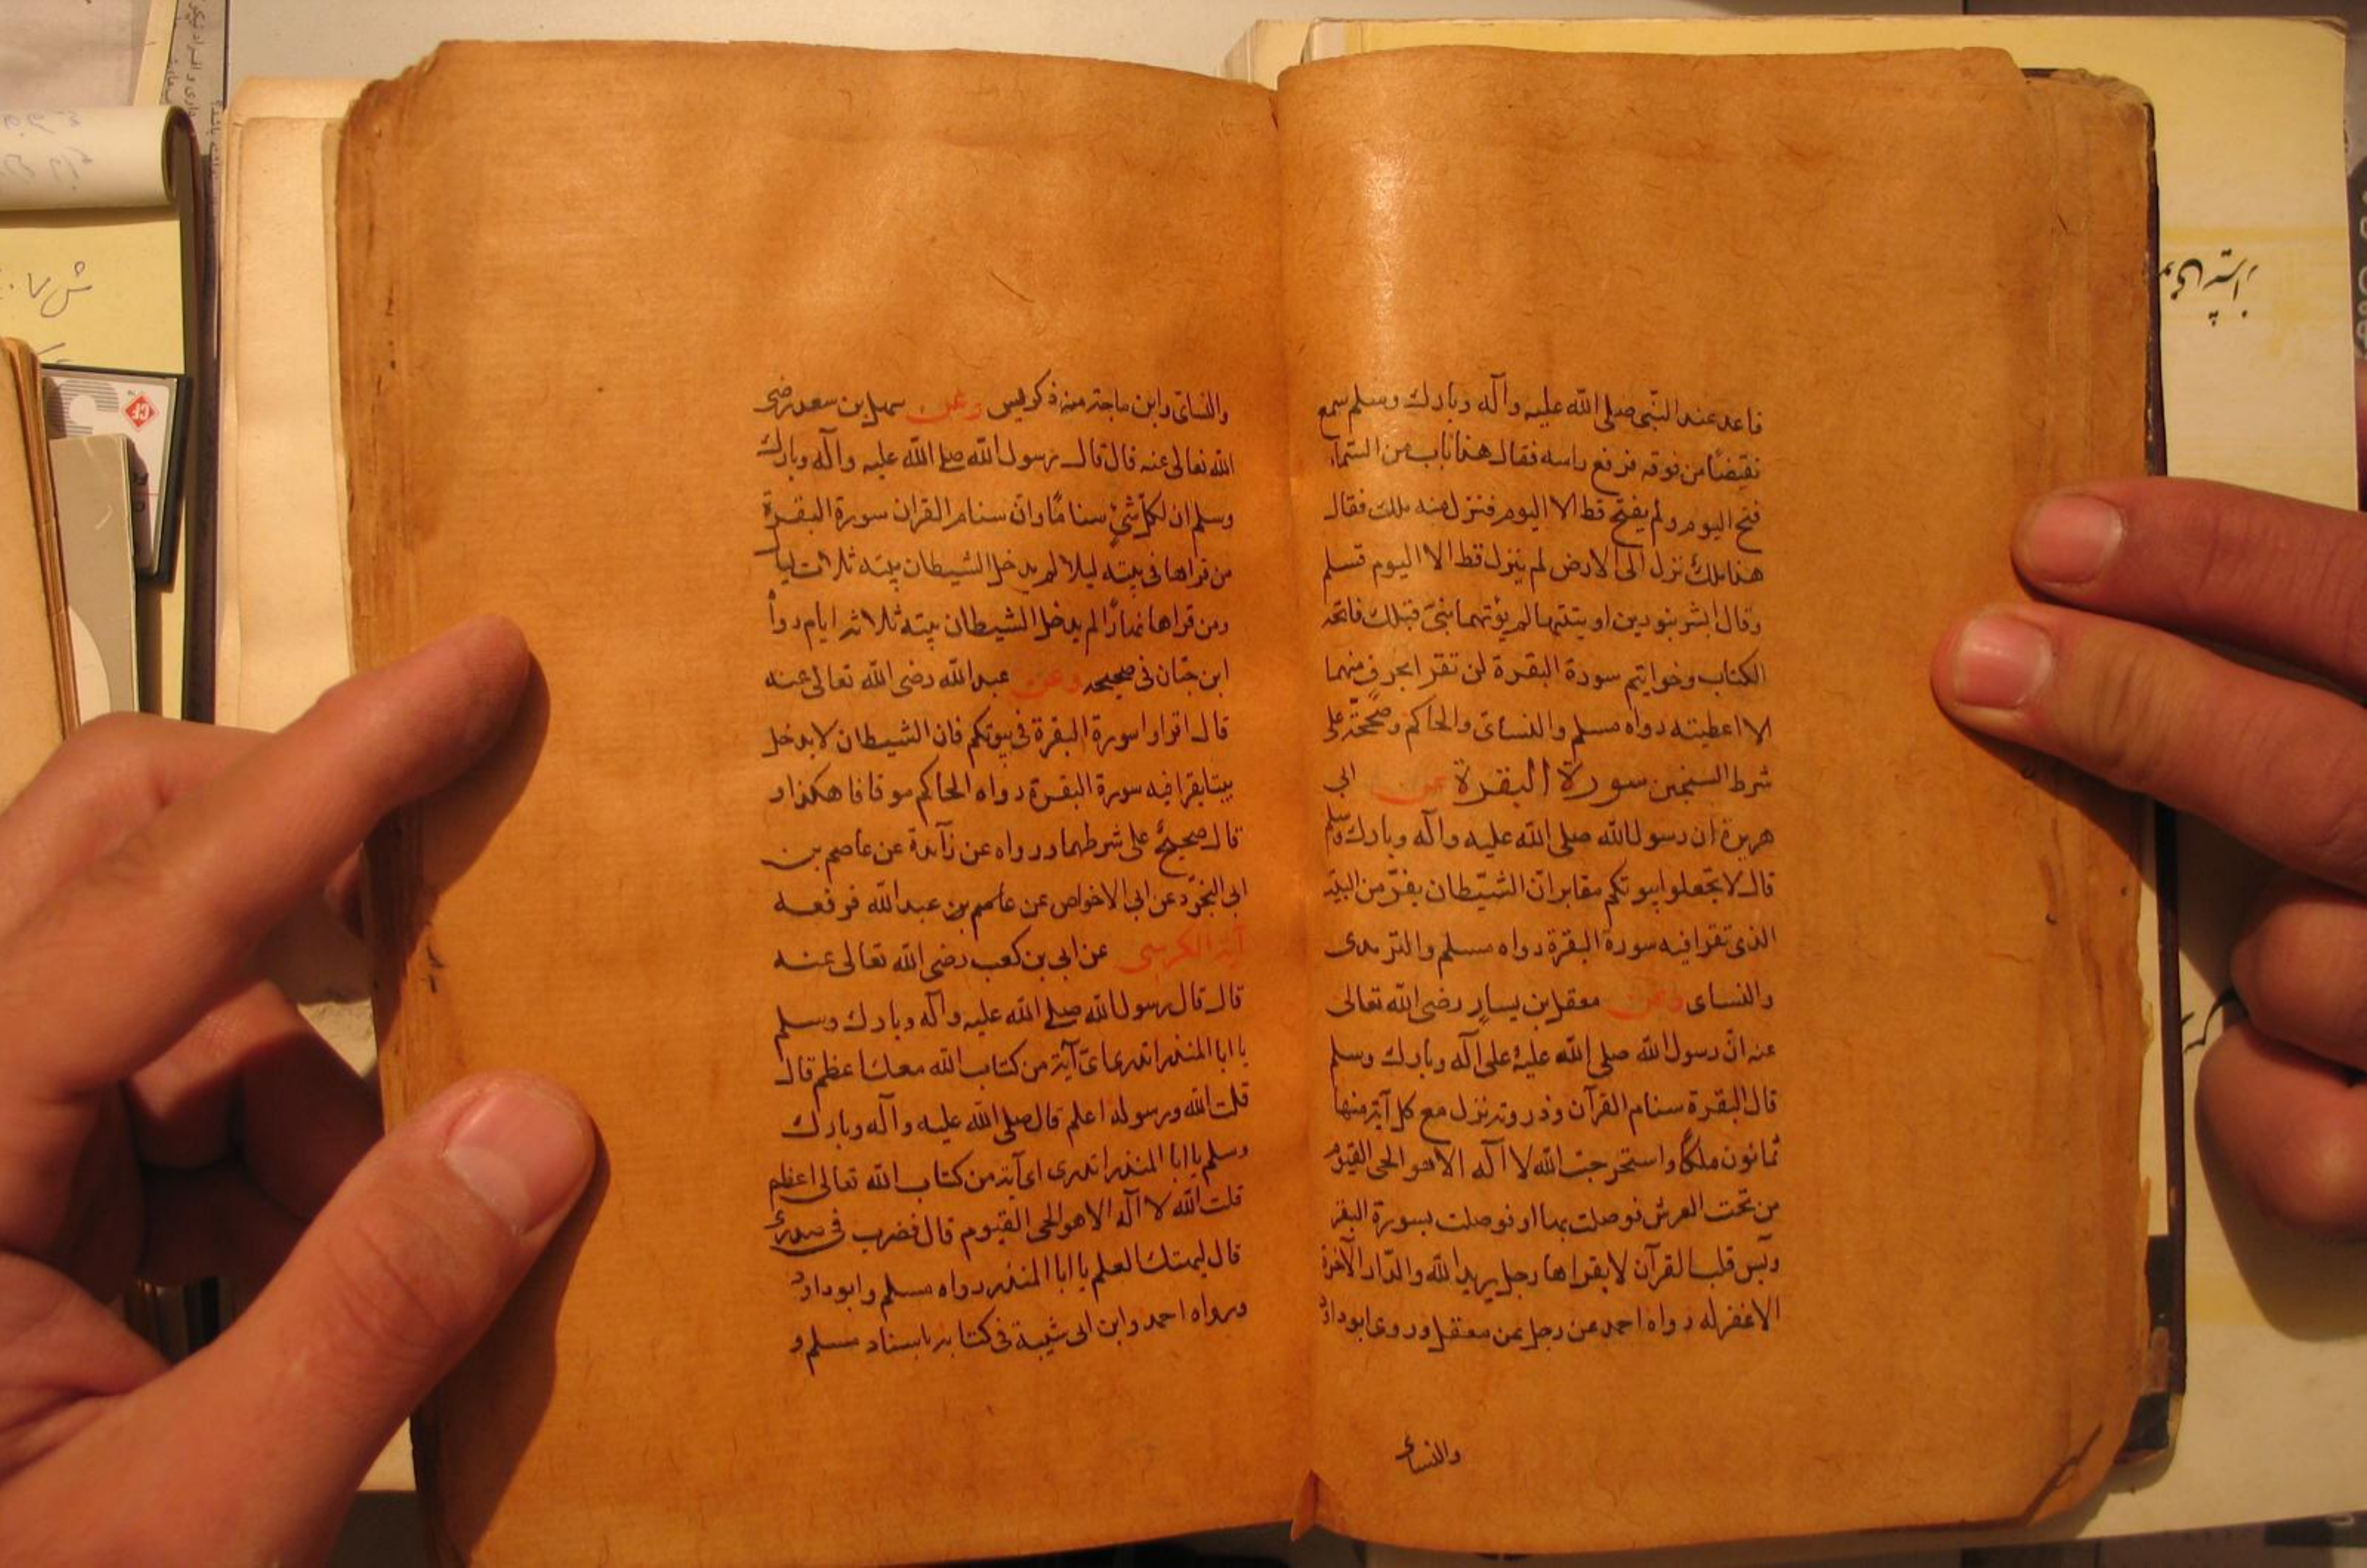 قاعد عند النبى صلى الله عليه وآله وبارك وسلم سمع
نقيضًا من فوقه فرفع راسه فقال هذا باب من السماء
فتح اليوم ولم يفتح قط الا اليوم فنزل منه ملك فقال
هذا ملك نزل الى الارض لم ينزل قط الا اليوم فسلم
وقال ابشر بنورين اوتيتهما لم يؤتهما نبى قبلك فاتحه
الكتاب وخواتيم سورة البقرة لن تقرا بحرف منهما
الا اعطيته رواه مسلم والنساى والحاكم وصححه على
شرط الشيخين سورة البقرة عن ابى
هريرة ان رسول الله صلى الله عليه وآله وبارك وسلم
قال لا تجعلوا بيوتكم مقابر انّ الشيطان يفرّ من البيت
الذى تقرا فيه سورة البقرة رواه مسلم والترمذى
والنساى وعن معقل بن يسار رضى الله تعالى
عنه انّ رسول الله صلى الله عليه على آله وبارك وسلم
قال البقرة سنام القرآن وذروته نزل مع كل آية منها
ثمانون ملكًا واستخرجت الله لا اله الا هو الحى القيوم
من تحت العرش فوصلت بها او فوصلت بسورة البقر
ويس قلب القرآن لا يقراها رجل يريد الله والدّار الآخرة
الا غفر له رواه احمد عن رجل عن معقل وروى ابوداود
والنساى
والنساى وابن ماجة منه ذكر يس وعن سهل بن سعد رضى
الله تعالى عنه قال قال رسول الله صلى الله عليه وآله وبارك
وسلم ان لكلّ شئ سنامًا وانّ سنام القرآن سورة البقرة
من قراها فى بيته ليلا لم يدخل الشيطان بيته ثلاث ليال
ومن قراها نهارًا لم يدخل الشيطان بيته ثلاثه ايام رواه
ابن حبّان فى صحيحه وعن عبد الله رضى الله تعالى عنه
قال اقراوا سورة البقرة فى بيوتكم فان الشيطان لا يدخل
بيتا يقرا فيه سورة البقرة رواه الحاكم موقافا هكذا و
قال صحيحٌ على شرطهما ورواه عن زآئدة عن عاصم بن
ابى النجوّد عن ابى الاخواص عن عاصم بن عبد الله فرفعه
آية الكرسى عن ابى بن كعب رضى الله تعالى عنه
قال قال رسول الله صلى الله عليه وآله وبارك وسلم
يا ابا المنذر اتدرى اىّ آية من كتاب الله معك اعظم قال
قلت الله ورسوله اعلم قال صلى الله عليه وآله وبارك
وسلم يا ابا المنذر اتدرى اى آية من كتاب الله تعالى اعظم
قلت الله لا آله الا هو الحى القيوم قال فضرب فى صدرى
قال ليهنك العلم يا ابا المنذر رواه مسلم وابوداود
ورواه احمد وابن ابى شيبة فى كتابه باسناد مسلم و